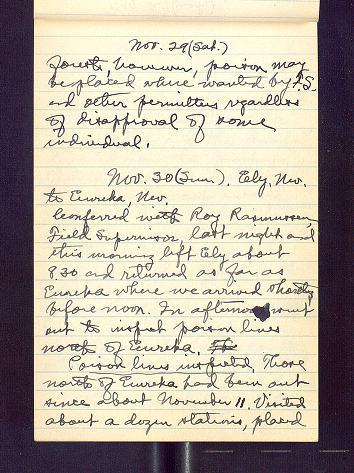 Nov. 29 (Sat.)
Forests, however, poison may
be placed where wanted by F.S.
and other permittees regardless
of disapproval of some
individual.
Nov. 30 (Sun.). Ely, Nev.
to Eureka, Nev.
Conferred with Roy Rasmussen,
Field Supervisor, last night and
this morning left Ely about
830 and returned as far as
Eureka where we arrived shortly
before noon. In afternoon went
out to inspect poison lines
north of Eureka.
Poison lines inspected. Those
north of Eureka had been out
since about November 11. Visited
about a dozen stations, placed